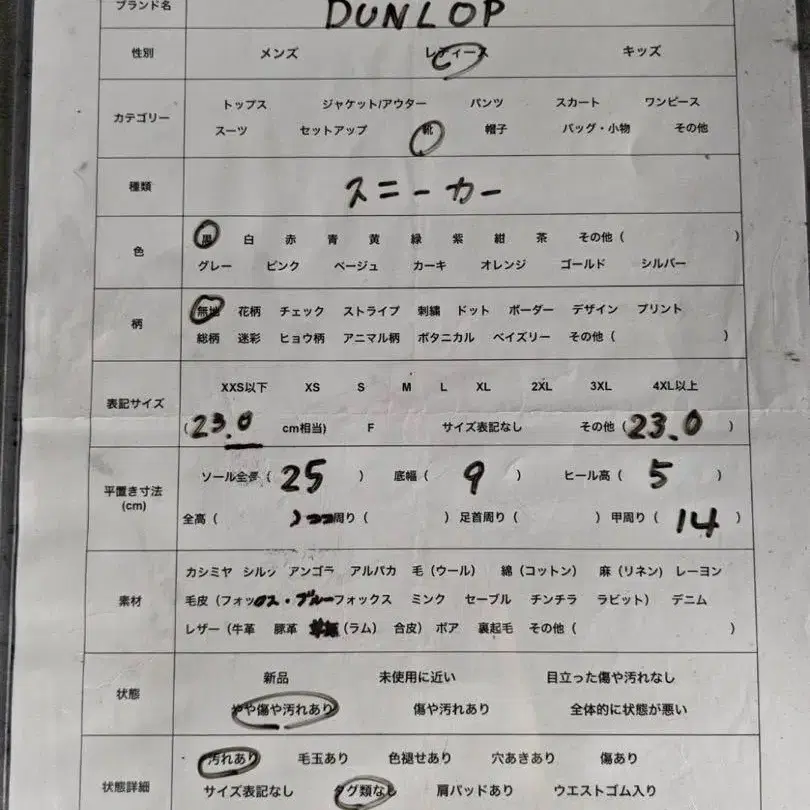 ブランド名 DUNLOP
性別 メンズ レディース キッズ
カテゴリー トップス ジャケット/アウター パンツ スカート ワンピース
スーツ セットアップ 靴 帽子 バッグ・小物 その他
種類 スニーカー
色 黒 白 赤 青 黄 緑 紫 紺 茶 その他 ( )
グレー ピンク ベージュ カーキ オレンジ ゴールド シルバー
柄 無地 花柄 チェック ストライプ 刺繍 ドット ボーダー デザイン プリント
総柄 迷彩 ヒョウ柄 アニマル柄 ボタニカル ペイズリー その他 ( )
表記サイズ XXS以下 XS S M L XL 2XL 3XL 4XL以上
(23.0 cm相当) F サイズ表記なし その他 (23.0)
平置き寸法 (cm) ソール全長 (25) 底幅 (9) ヒール高 (5)
全高 ( ) 周り ( ) 足首周り ( ) 甲周り (14)
素材 カシミヤ シルク アンゴラ アルパカ 毛 (ウール) 綿 (コットン) 麻 (リネン) レーヨン
毛皮 (フォックス・ブルーフォックス ミンク セーブル チンチラ ラビット) デニム
レザー (牛革 豚革 (ラム) 合皮) ボア 裏起毛 その他 ( )
状態 新品 未使用に近い 目立った傷や汚れなし
やや傷や汚れあり 傷や汚れあり 全体的に状態が悪い
状態詳細 汚れあり 毛玉あり 色褪せあり 穴あきあり 傷あり
サイズ表記なし タグ類なし 肩パッドあり ウエストゴム入り